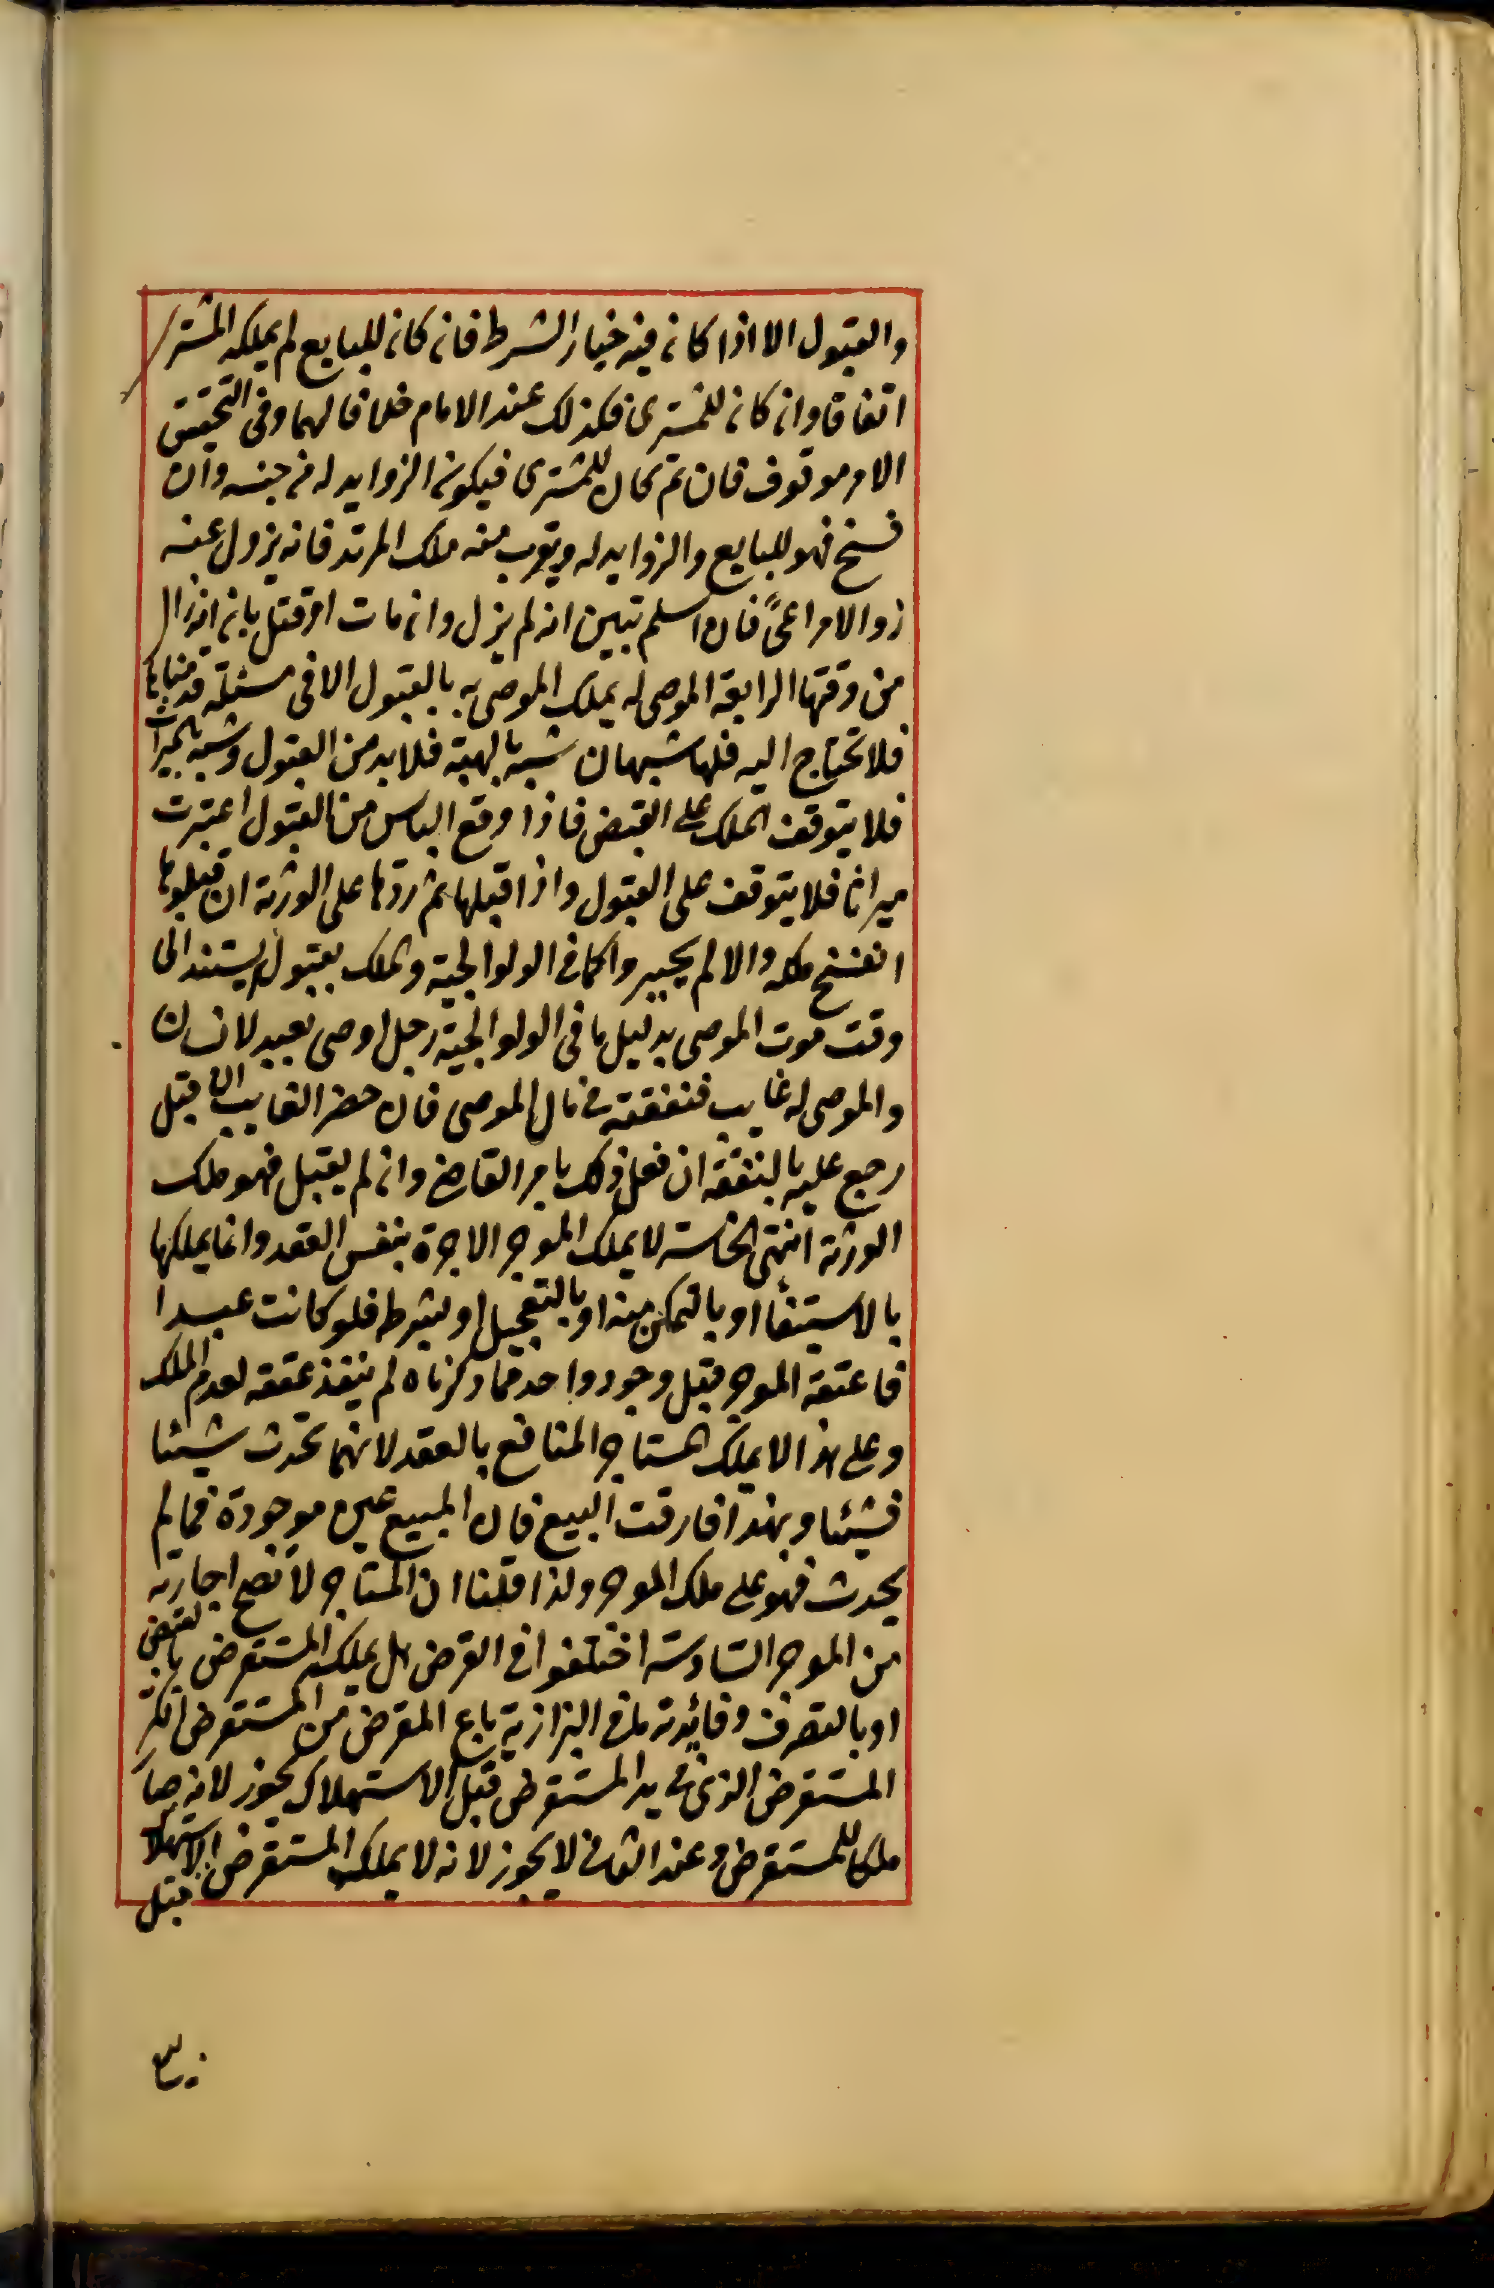 والقبول الا اذا كان فيه خيار الشرط فان كان للبايع لم يملكه المشتري
اتفاقا وان كان للمشتري فكذلك عند الامام خلافا لهما وفي التحقيق
الامر موقوف فان تم كان للمشتري فيكون الزوايد له من حينه وان
فسخ فهو للبايع والزوايد له ويقرب منه ملك المرتد فانه يزول عنه
زوالا مراعىً فان اسلم تبين انه لم يزل وان مات او قتل بان انه زال
من وقتها الرابعة الموصى له يملك الموصى به بالقبول الا في مسئلة قدمناها
فلا تحتاج اليه فلها شبهان شبه بالهبة فلا بد من القبول وشبه بالميراث
فلا يتوقف الملك على القبض فاذا وقع الياس من القبول اعتبرت
ميراثا فلا يتوقف على القبول واذا قبلها ثم ردها على الورثة ان قبلوها
انفسخ ملكه والا لم يجبروا كما في الولوالجية والملك بقبوله يستند الى
وقت موت الموصي بدليل ما في الولوالجية رجل اوصى بعبد لانسان
والموصى له غايب فنفقته في مال الموصي فان حضر الغايب ان قبل
رجع عليه بالنفقة ان فعل ذلك بامر القاضي وان لم يقبل فهو ملك
الورثة انتهى الخامسة لا يملك الموجر الاجرة بنفس العقد وانما يملكها
بالاستيفا او بالتمكن منه او بالتعجيل او بشرطه فلو كانت عبدا
فاعتقه الموجر قبل وجود واحد مما ذكرناه لم ينفذ عتقه لعدم الملك
وعلى هذا لا يملك المستاجر المنافع بالعقد لانها تحدث شيئا
فشيئا وبهذا فارقت البيع فان المبيع عين موجودة فما لم
يحدث فهو على ملك الموجر ولذا قلنا ان المستاجر لا تصح اجارته
من الموجر السادسة اختلفوا في القرض هل يملكه المستقرض بالقبض
او بالتصرف وفائدته ما في البزازية باع المقرض من المستقرض الكر
المستقرض الذي في يد المستقرض قبل الاستهلاك يجوز لانه صار
ملكا للمستقرض وعند الثاني لا يجوز لانه لا يملك المستقرض الاستهلاك
قبل